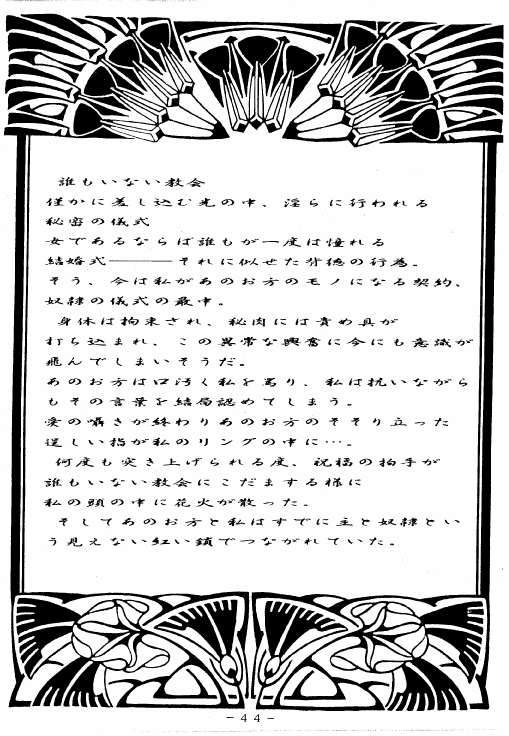 誰もいない教会
僅かに差し込む光の中、淫らに行われる
秘密の儀式
女であるならば誰もが一度は憧れる
結婚式――――それに似せた背徳の行為。
そう、今は私があのお方のモノになる契約、
奴隷の儀式の最中。
身体は拘束され、秘肉には責め具が
打ち込まれ、この異常な興奮に今にも意識が
飛んでしまいそうだ。
あのお方は口汚く私を罵り、私は抗いながら
もその言葉を結局認めてしまう。
愛の囁きが終わりあのお方のそそり立った
逞しい指が私のリングの中に…。
何度も突き上げられる度、祝福の拍手が
誰もいない教会にこだまする様に
私の頭の中に花火が散った。
そしてあのお方と私はすでに主と奴隷とい
う見えない紅い鎖でつながれていた。
－４４－